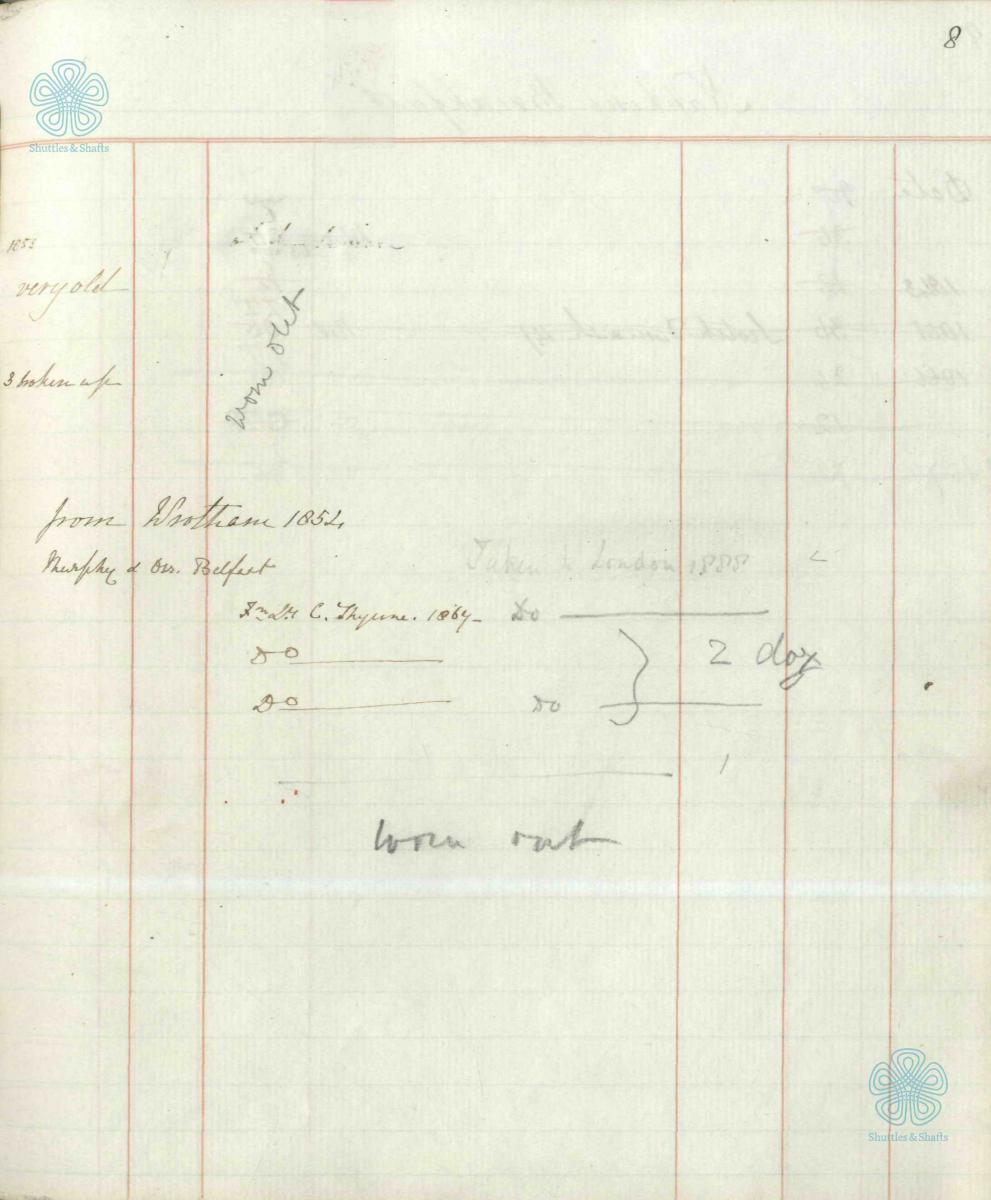 8
Shuttles & Shafts
1853
very old
worn out
3 broken up
from Wrotham 1854
Murphy & Orr. Belfast
Taken to London 1888
Fm Ly C. Thynne. 1867 Do
Do
2 doz
Do Do
worn out
Shuttles & Shafts